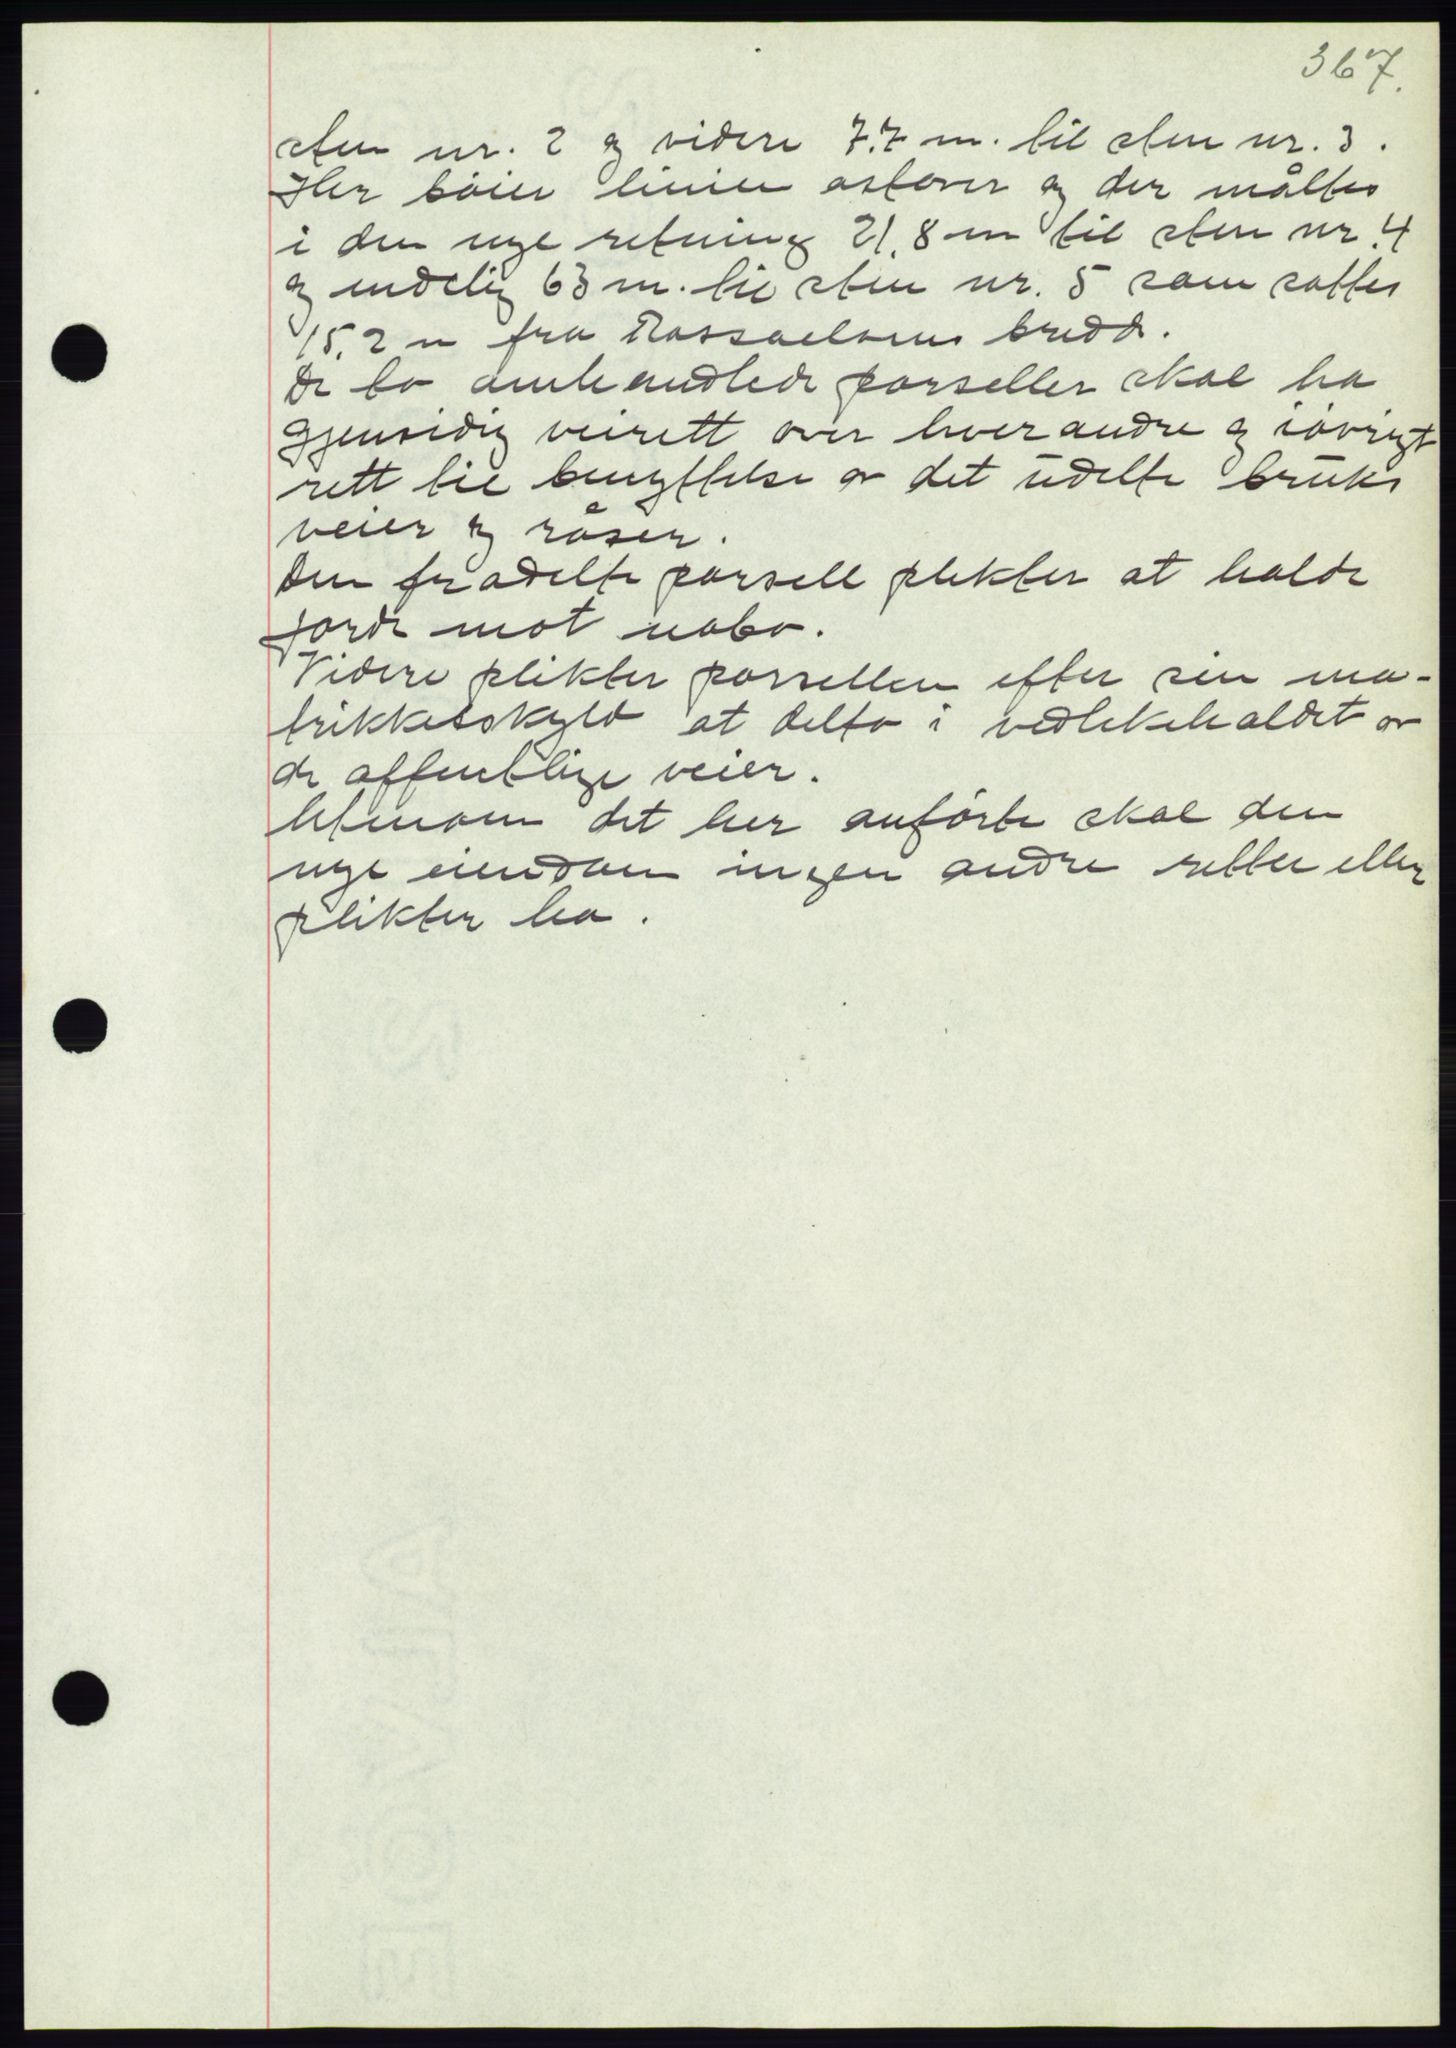 367.
sten nr. 2 og videre 7.7 m. til sten nr. 3.
Her bøier linien østover og der måltes
i den nye retning 21.8 m til sten nr. 4
og endelig 63 m. til sten nr. 5 som sattes
15.2 m fra Rossaelvens bredd.
De to omhandlede parseller skal ha
gjensidig veirett over hverandre og iøvrigt
rett til benyttelse av det udelte bruks
veier og råser.
Den fradelte parsell plikter at holde
gjorde mot nabo.
Videre plikter parsellen efter sin ma-
trikkelskyld at delta i vedlikeholdet av
de offentlige veier.
Utenom det her anførte skal den
nye eiendom ingen andre retter eller
plikter ha.